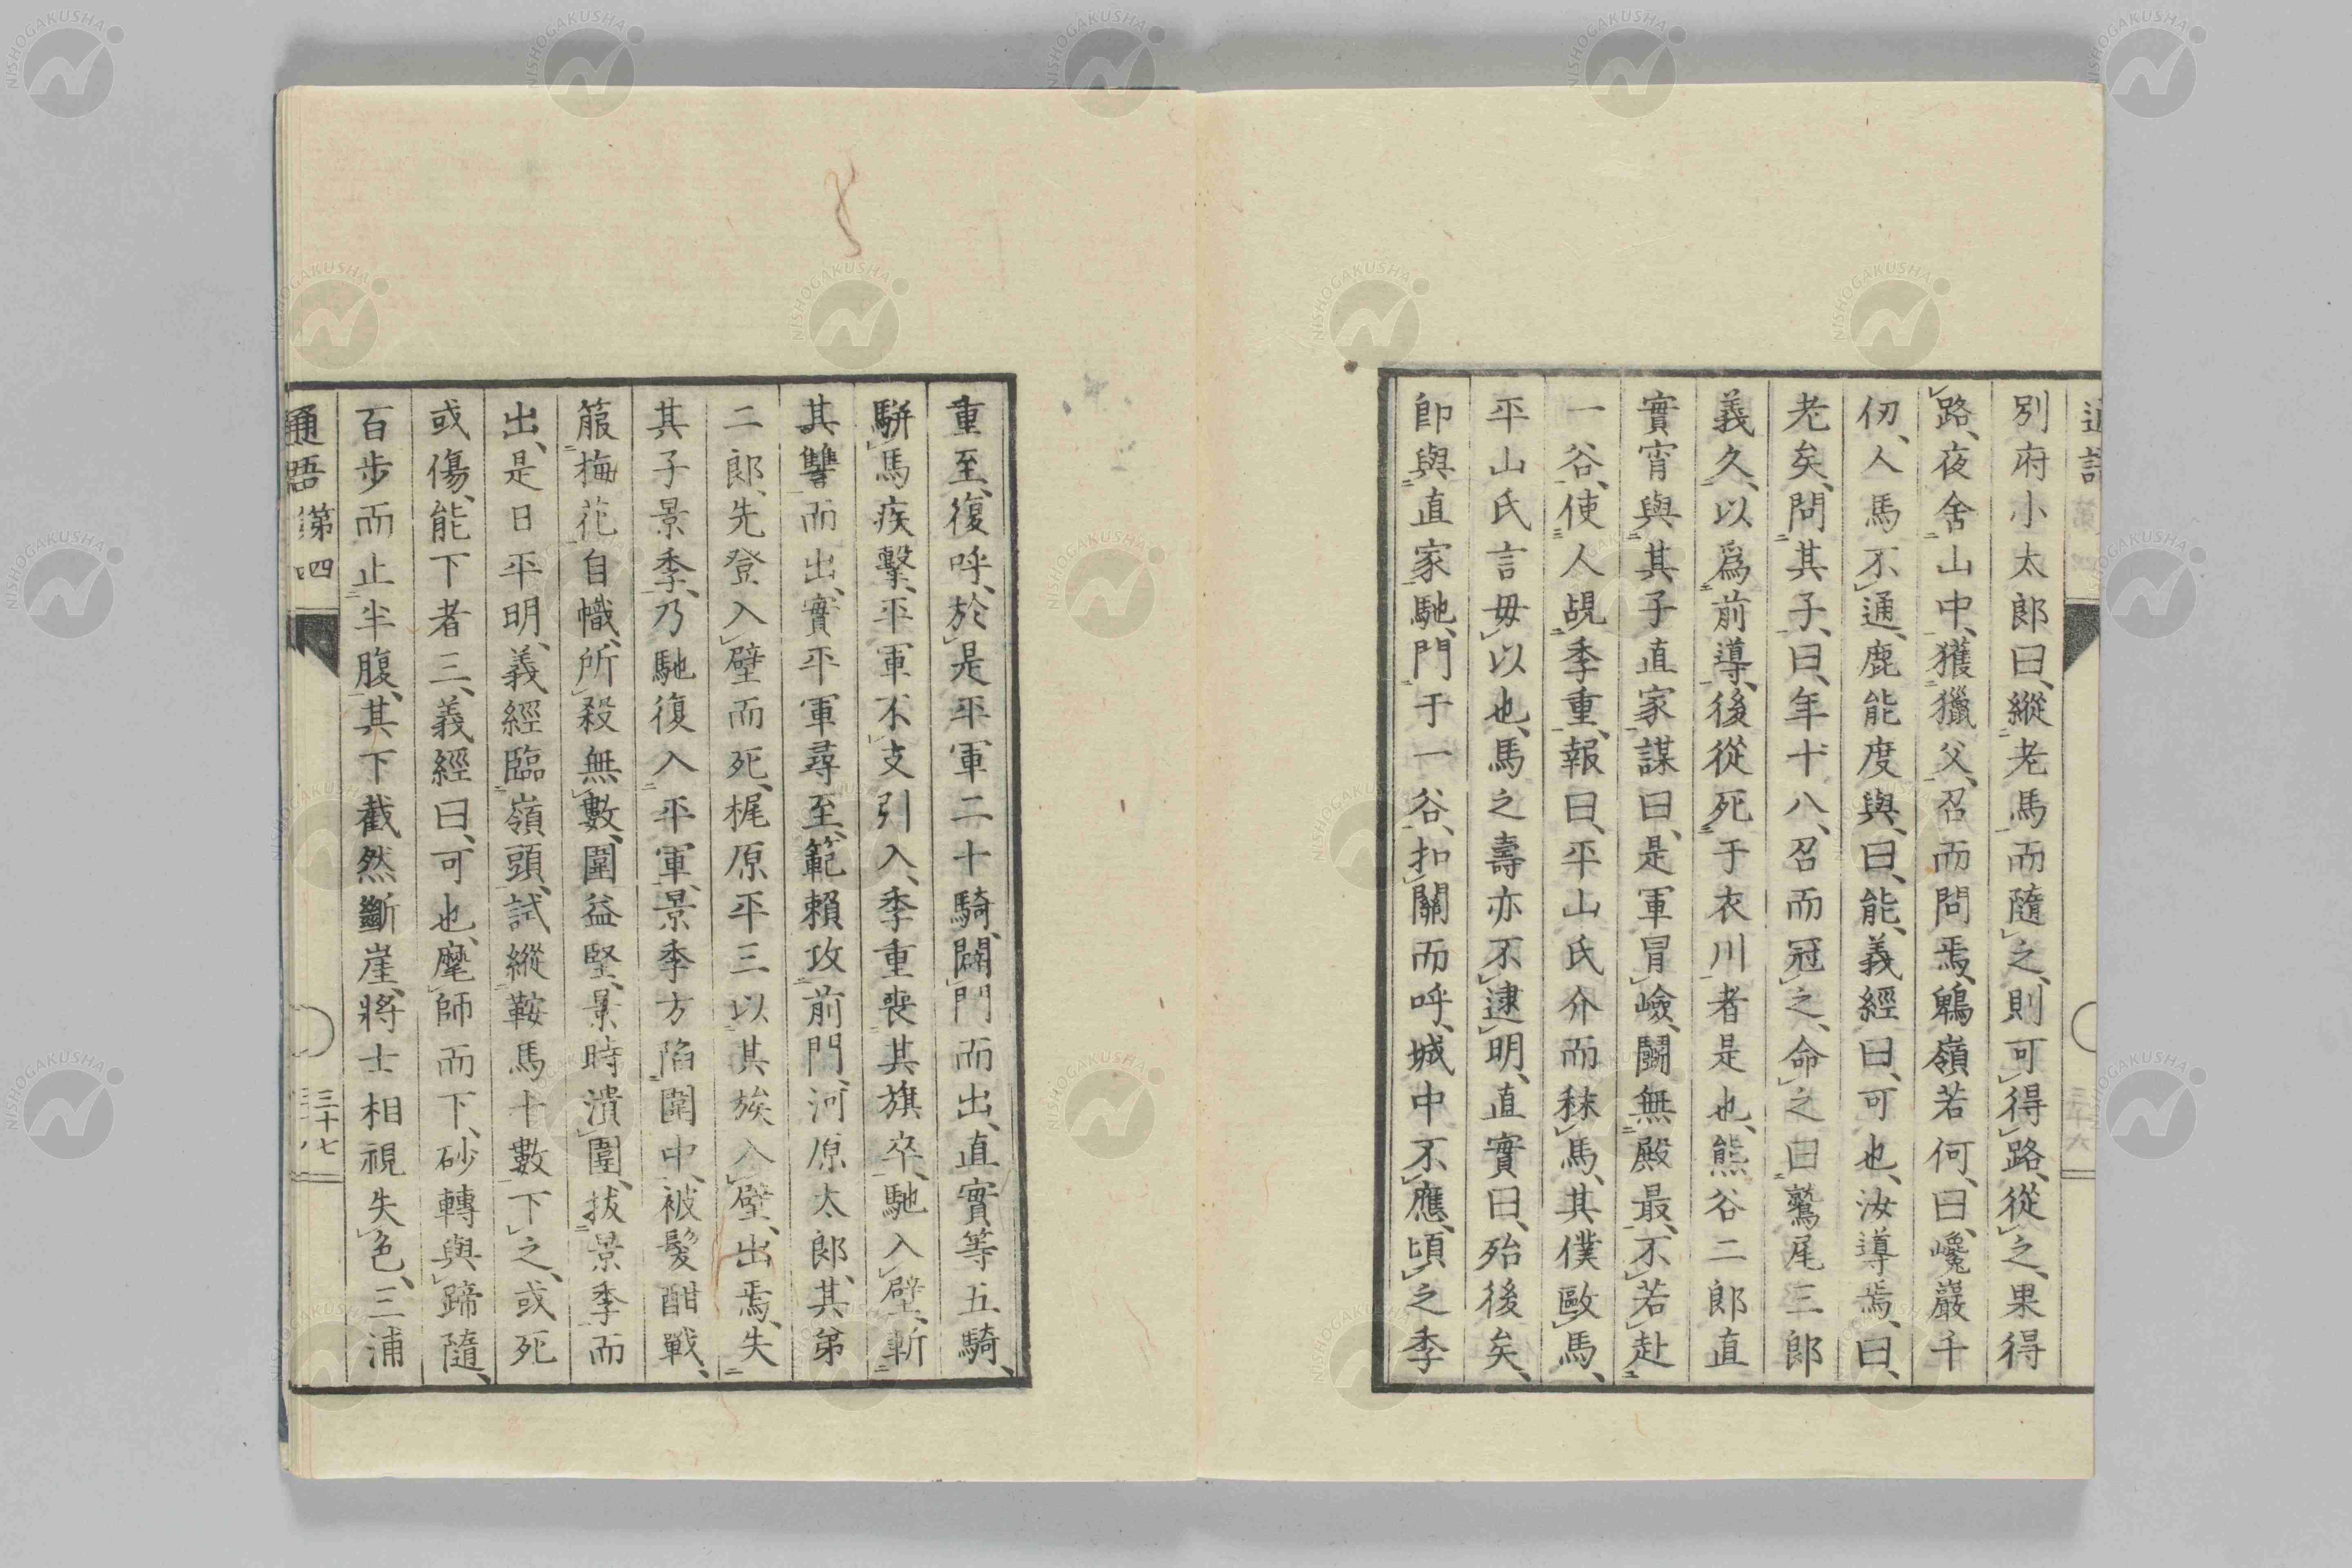 別府小太郎曰、縱老馬而隨之、則可得路、從之、果得
路、夜舍山中、獲獵父、召而問焉、鵯嶺若何、曰、巉巖千
仞、人馬不通、鹿能度與、曰、能、義經曰、可也、汝導焉、曰、
老矣、問其子、曰、年十八、召而冠之、命之曰鷲尾三郎
義久、以爲前導、後從死于衣川者是也、熊谷二郎直
實宵與其子直家謀曰、是軍冒嶮、鬪無殿最、不若赴
一谷、使人覘季重、報曰、平山氏介而秣馬、其僕毆馬、
平山氏言毋以也、馬之壽亦不逮明、直實曰、殆後矣、
卽與直家馳、門于一谷、扣關而呼、城中不應、頃之季
重至、復呼、於是平軍二十騎、闢門而出、直實等五騎、
駢馬疾擊、平軍不支引入、季重喪其旗卒、馳入壁、斬
其讐而出、實平軍尋至、範賴攻前門、河原太郎、其弟
二郎、先登入壁而死、梶原平三以其族入壁、出焉、失
其子景季、乃馳復入平軍、景季方陷圍中、被髮酣戰、
箙梅花自幟、所殺無數、圍益堅、景時潰圍、拔景季而
出、是日平明、義經臨嶺頭、試縱鞍馬十數下之、或死
或傷、能下者三、義經曰、可也、麾師而下、砂轉與蹄隨、
百步而止半腹、其下截然斷崖、將士相視失色、三浦
通語 第四
三十七